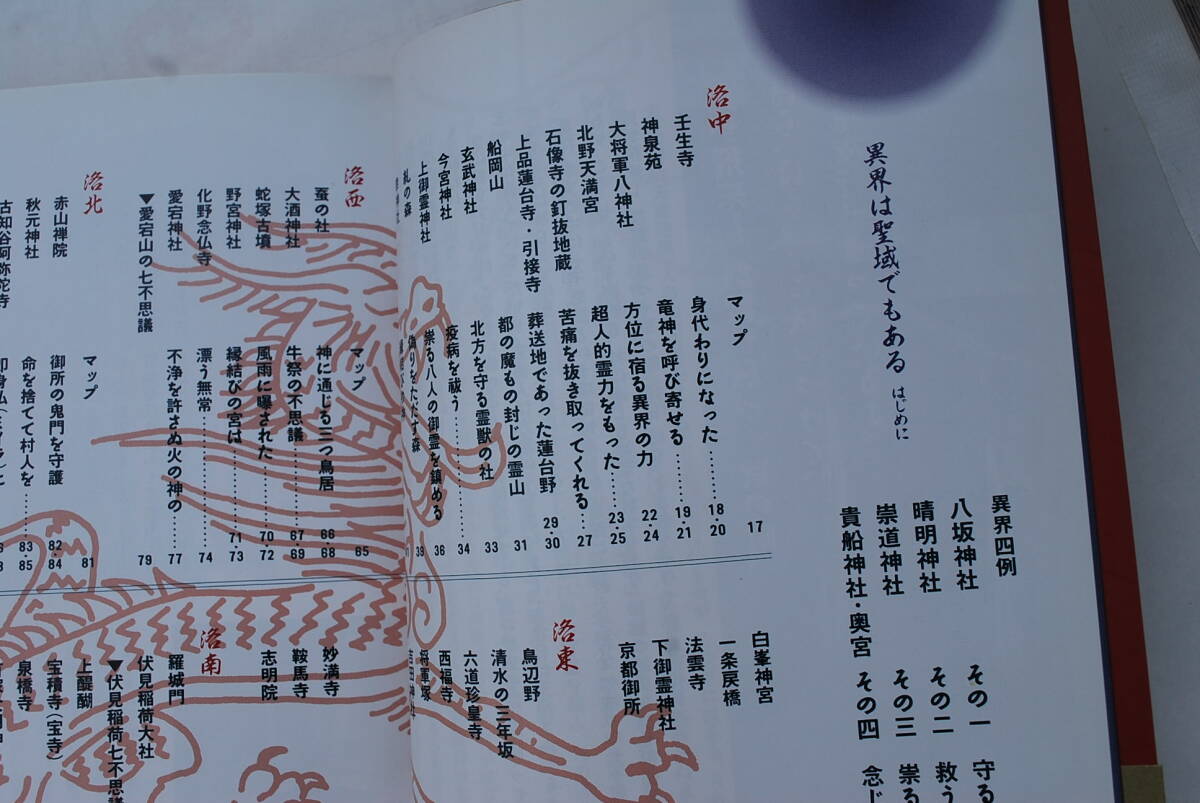 異界は聖域でもある はじめに
異界四例
八坂神社 その一 守る
晴明神社 その二 救う
崇道神社 その三 祟る
貴船神社・奥宮 その四 念じ
洛中
マップ 17
壬生寺 身代わりになった…… 18・20
神泉苑 竜神を呼び寄せる…… 19・21
大将軍八神社 方位に宿る異界の力 22・24
北野天満宮 超人的霊力をもった…… 23・25
石像寺の釘抜地蔵 苦痛を抜き取ってくれる… 27
上品蓮台寺・引接寺 葬送地であった蓮台野 29・30
船岡山 都の魔もの封じの霊山 31
玄武神社 北方を守る霊獣の社 33
今宮神社 疫病を祓う…… 34
上御霊神社 祟る八人の御霊を鎮める 36
糺の森 偽りをただす森 39
白峯神宮
一条戻橋
法雲寺
下御霊神社
京都御所
洛東
鳥辺野
清水の三年坂
六道珍皇寺
西福寺
将軍塚
吉田神社
洛西
マップ 65
蚕の社 神に通じる三つ鳥居 66・68
大酒神社 牛祭の不思議 67・69
蛇塚古墳 風雨に曝された…… 70・72
野宮神社 縁結びの宮は…… 71・73
化野念仏寺 漂う無常…… 74
愛宕神社 不浄を許さぬ火の神の…… 77
▼愛宕山の七不思議 79
洛北
マップ 81
赤山禅院 御所の鬼門を守護 82・84
秋元神社 命を捨てて村人を…… 83・85
古知谷阿弥陀寺
妙満寺
鞍馬寺
志明院
洛南
羅城門
伏見稲荷大社
▼伏見稲荷七不思議
上醍醐
宝積寺(宝寺)
泉橋寺